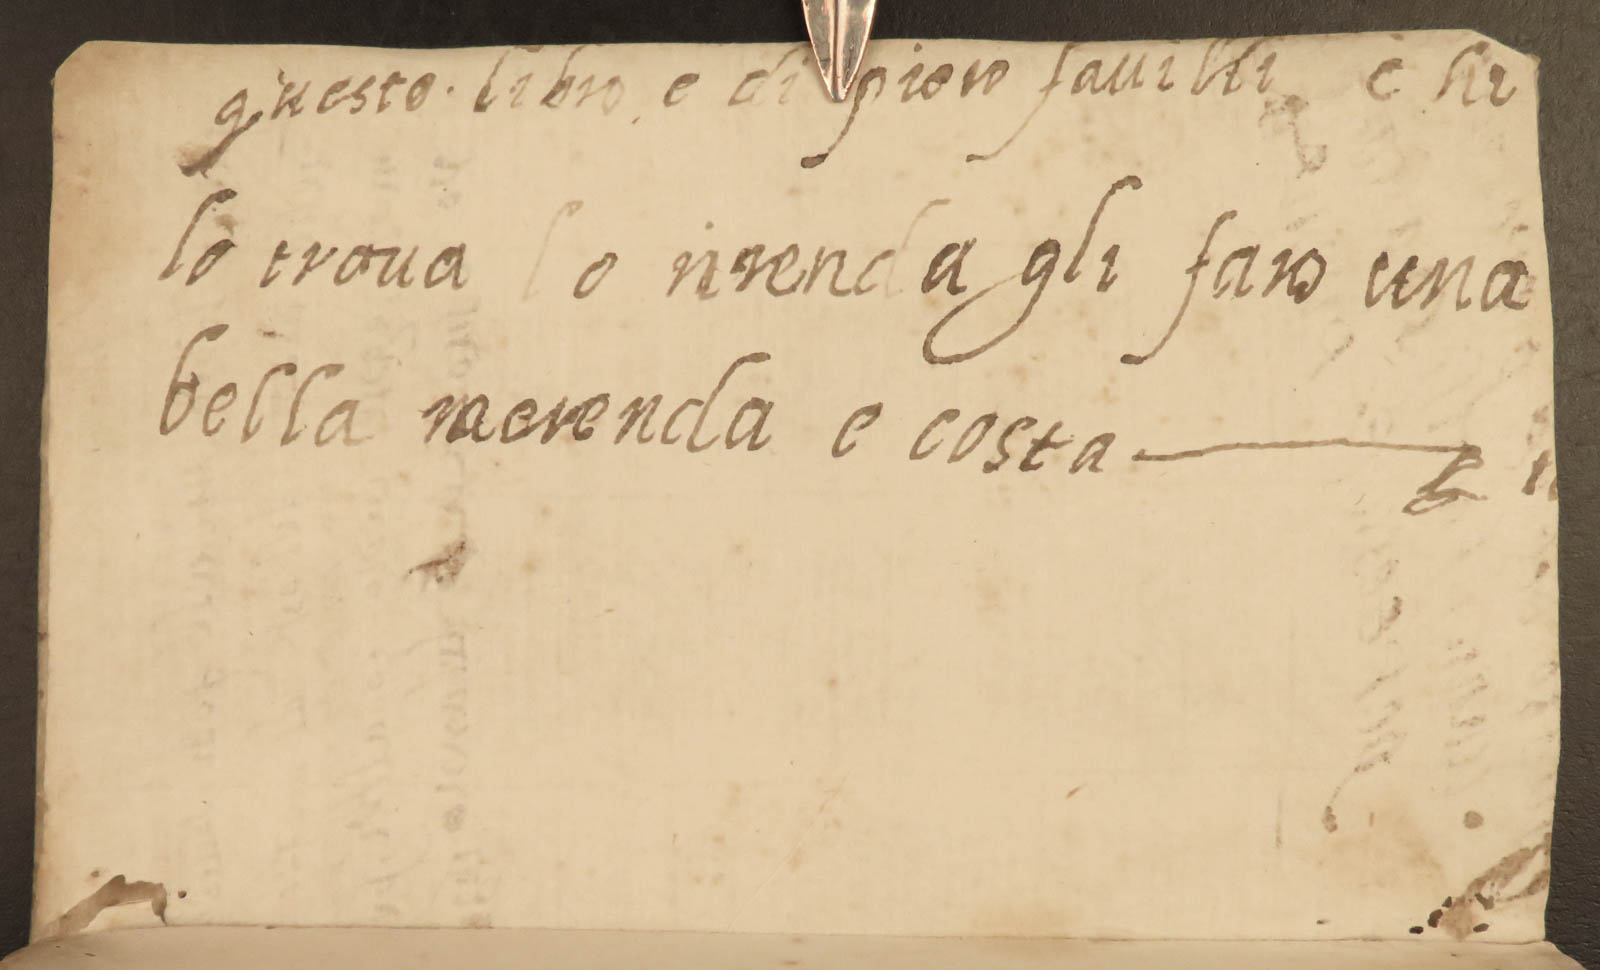 questo. libro e di piero fauilli e hi
lo troua lo rirenda gli faro una
bella merenda e costa